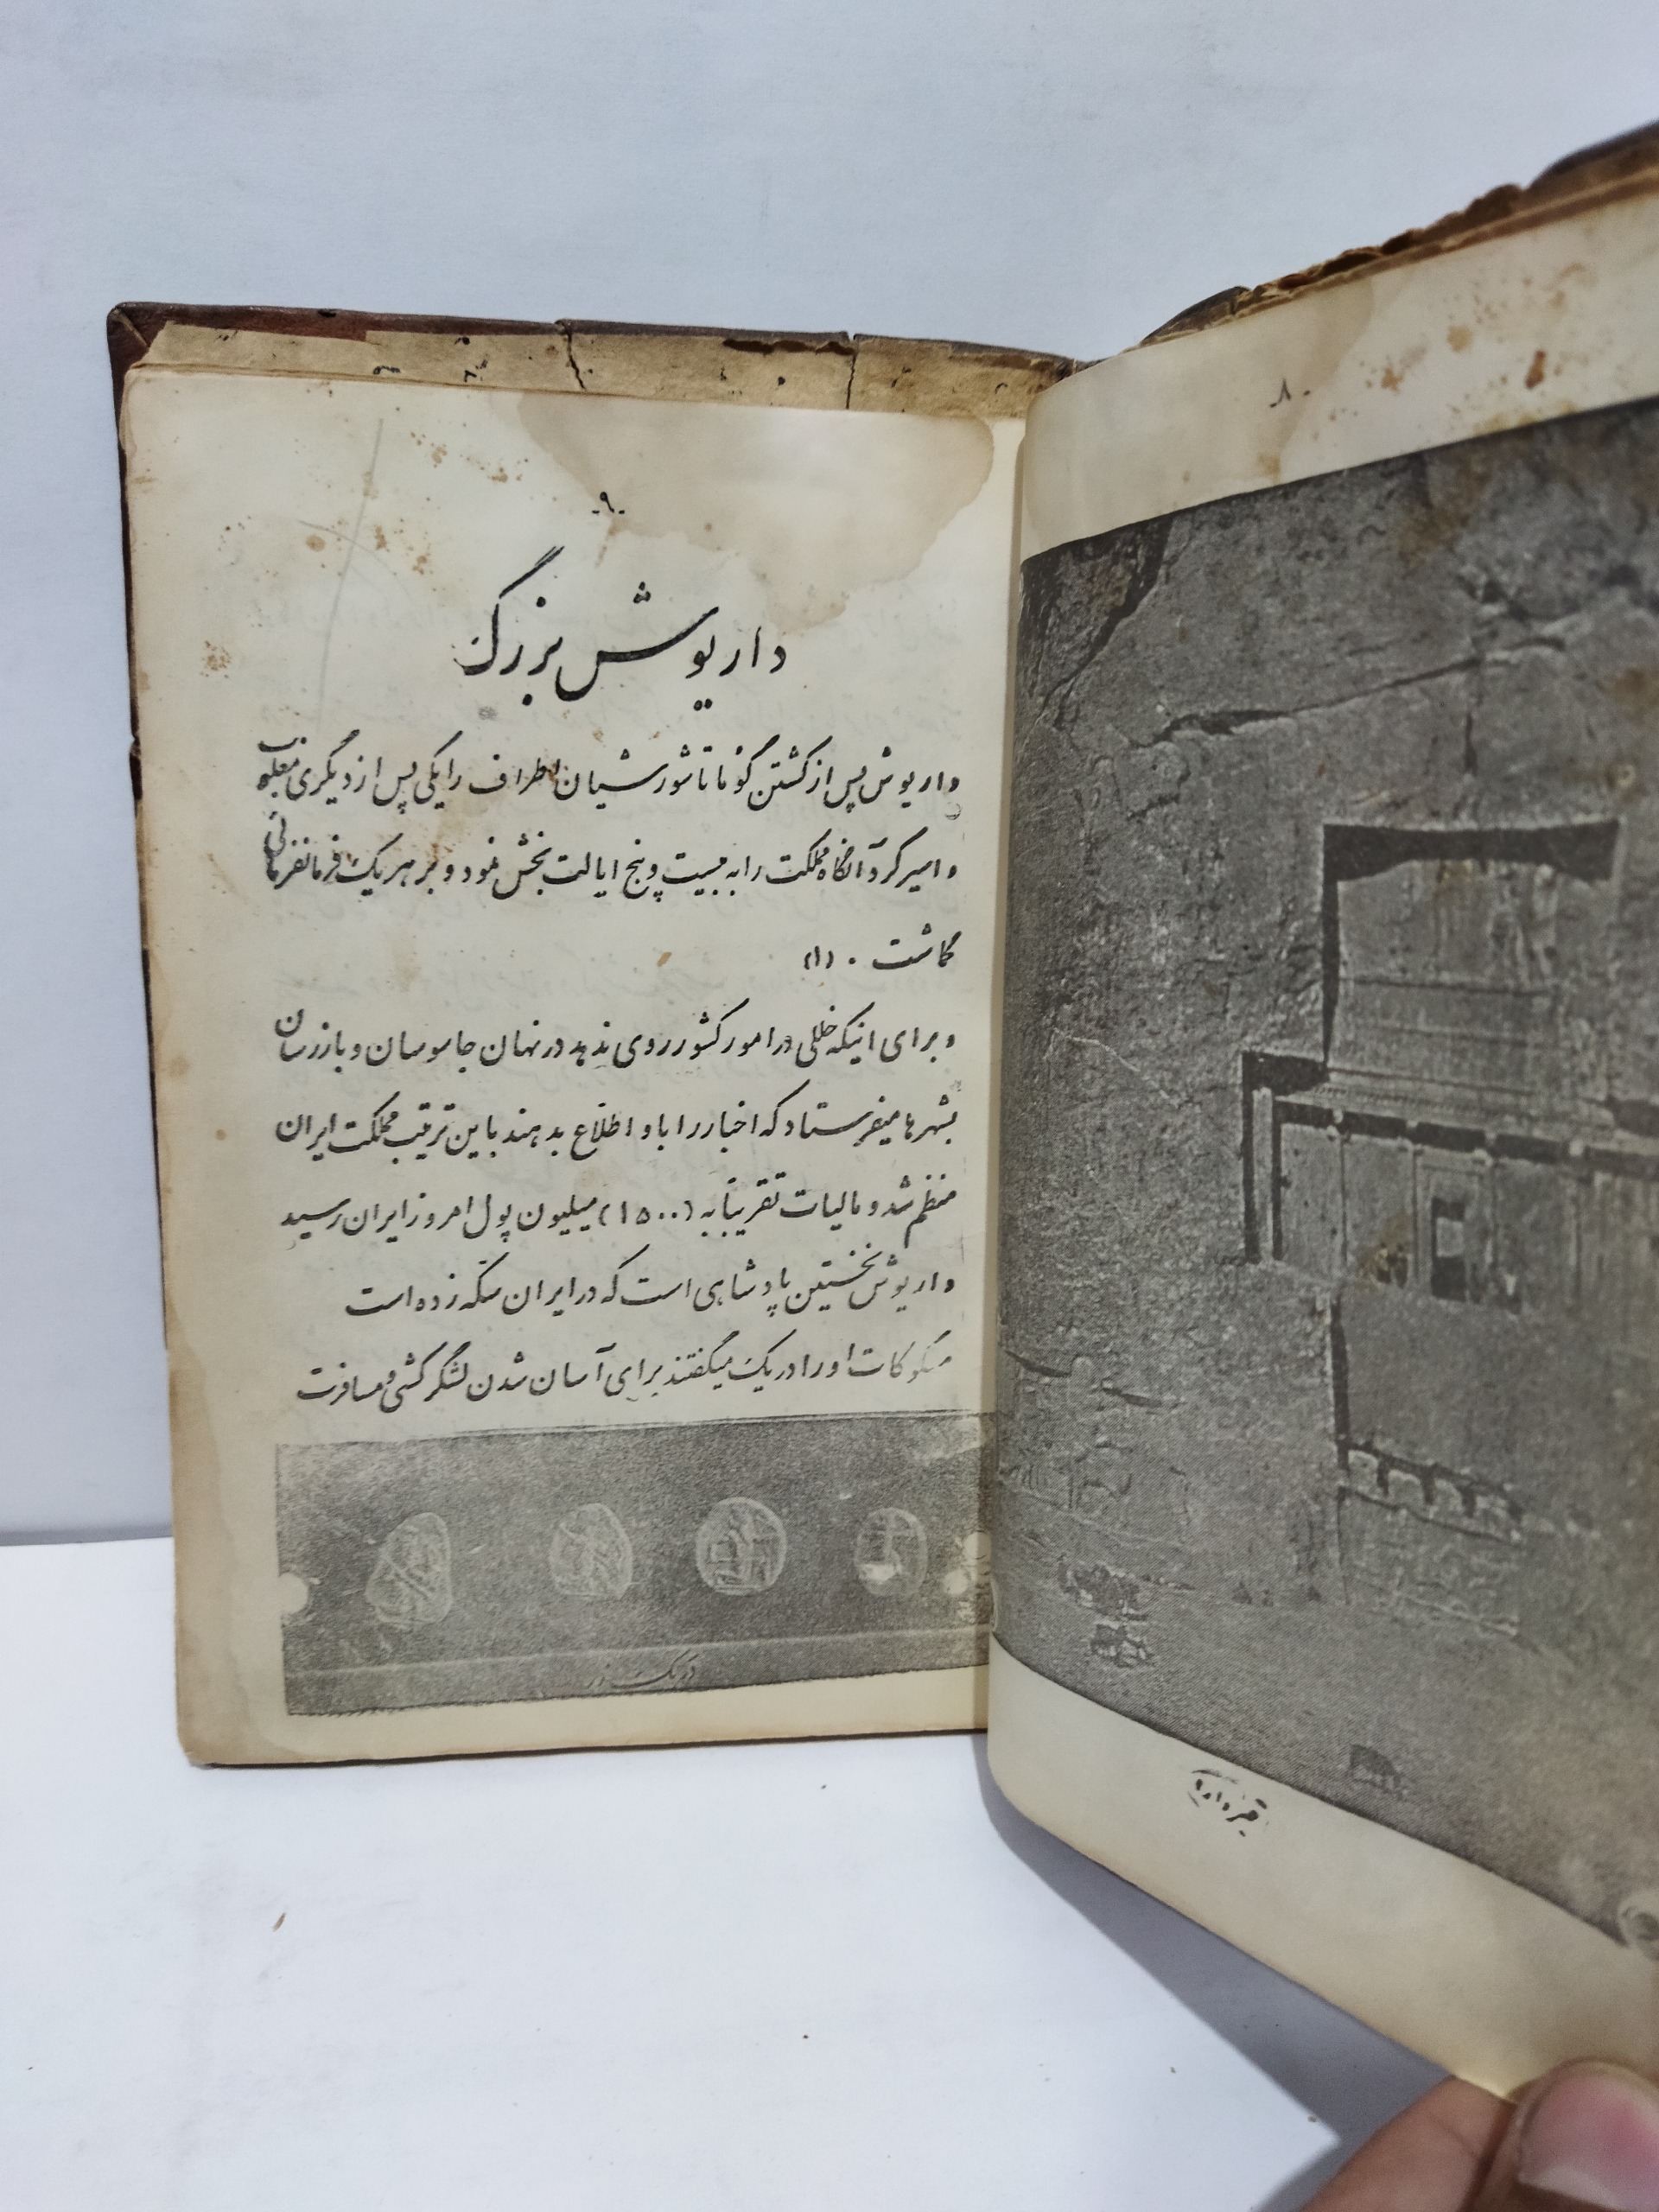 -۸-
قبر دارا
-۹-
داریوش بزرگ
داریوش پس از کشتن گوماتا شورشیان اطراف را یکی پس از دیگری مغلوب
و اسیر کرد آنگاه مملکت را به بیست و پنج ایالت بخش نمود و بر هر یک فرمانفرمائی
گماشت . (۱)
و برای اینکه خللی در امور کشور روی ندهد در نهان جاسوسان و بازرسان
بشهرها میفرستاد که اخبار را باو اطلاع بدهند باین ترتیب مملکت ایران
منظم شد و مالیات تقریباً به (۱۵۰۰) میلیون پول امروز ایران رسید
داریوش نخستین پادشاهی است که در ایران سکه زده است
مسکوکات او را دریک میگفتند برای آسان شدن لشگرکشی و مسافرت
دریک زر